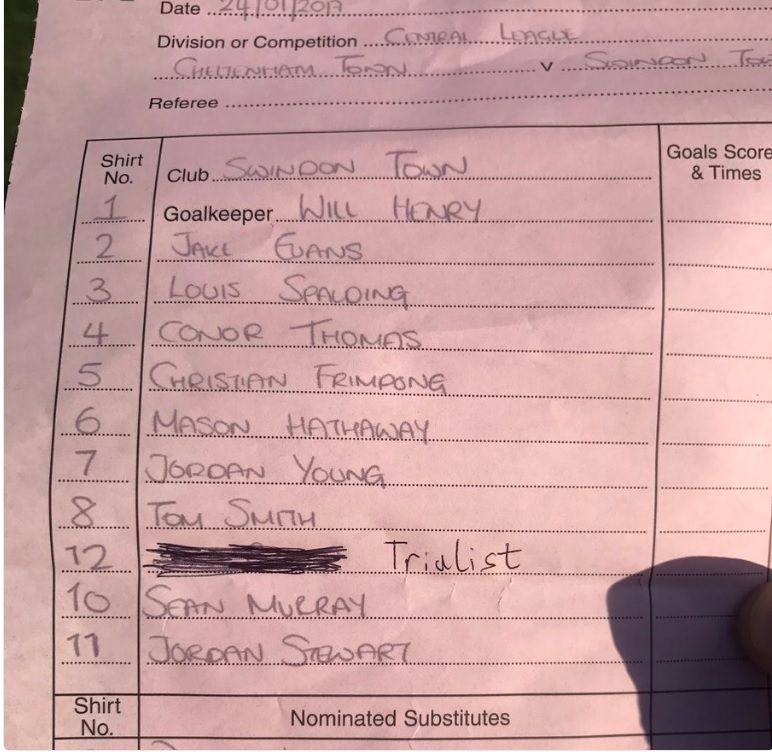 Date 24/01/2017
Division or Competition CENTRAL LEAGUE
CHELTENHAM TOWN v SWINDON
Referee
Shirt No. Club SWINDON TOWN Goals Score & Times
1 Goalkeeper WILL HENRY
2 JAKE EVANS
3 LOUIS SPALDING
4 CONOR THOMAS
5 CHRISTIAN FRIMPONG
6 MASON HATHAWAY
7 JORDAN YOUNG
8 TOM SMITH
12 Trialist
10 SEAN MURRAY
11 JORDAN STEWART
Shirt No. Nominated Substitutes